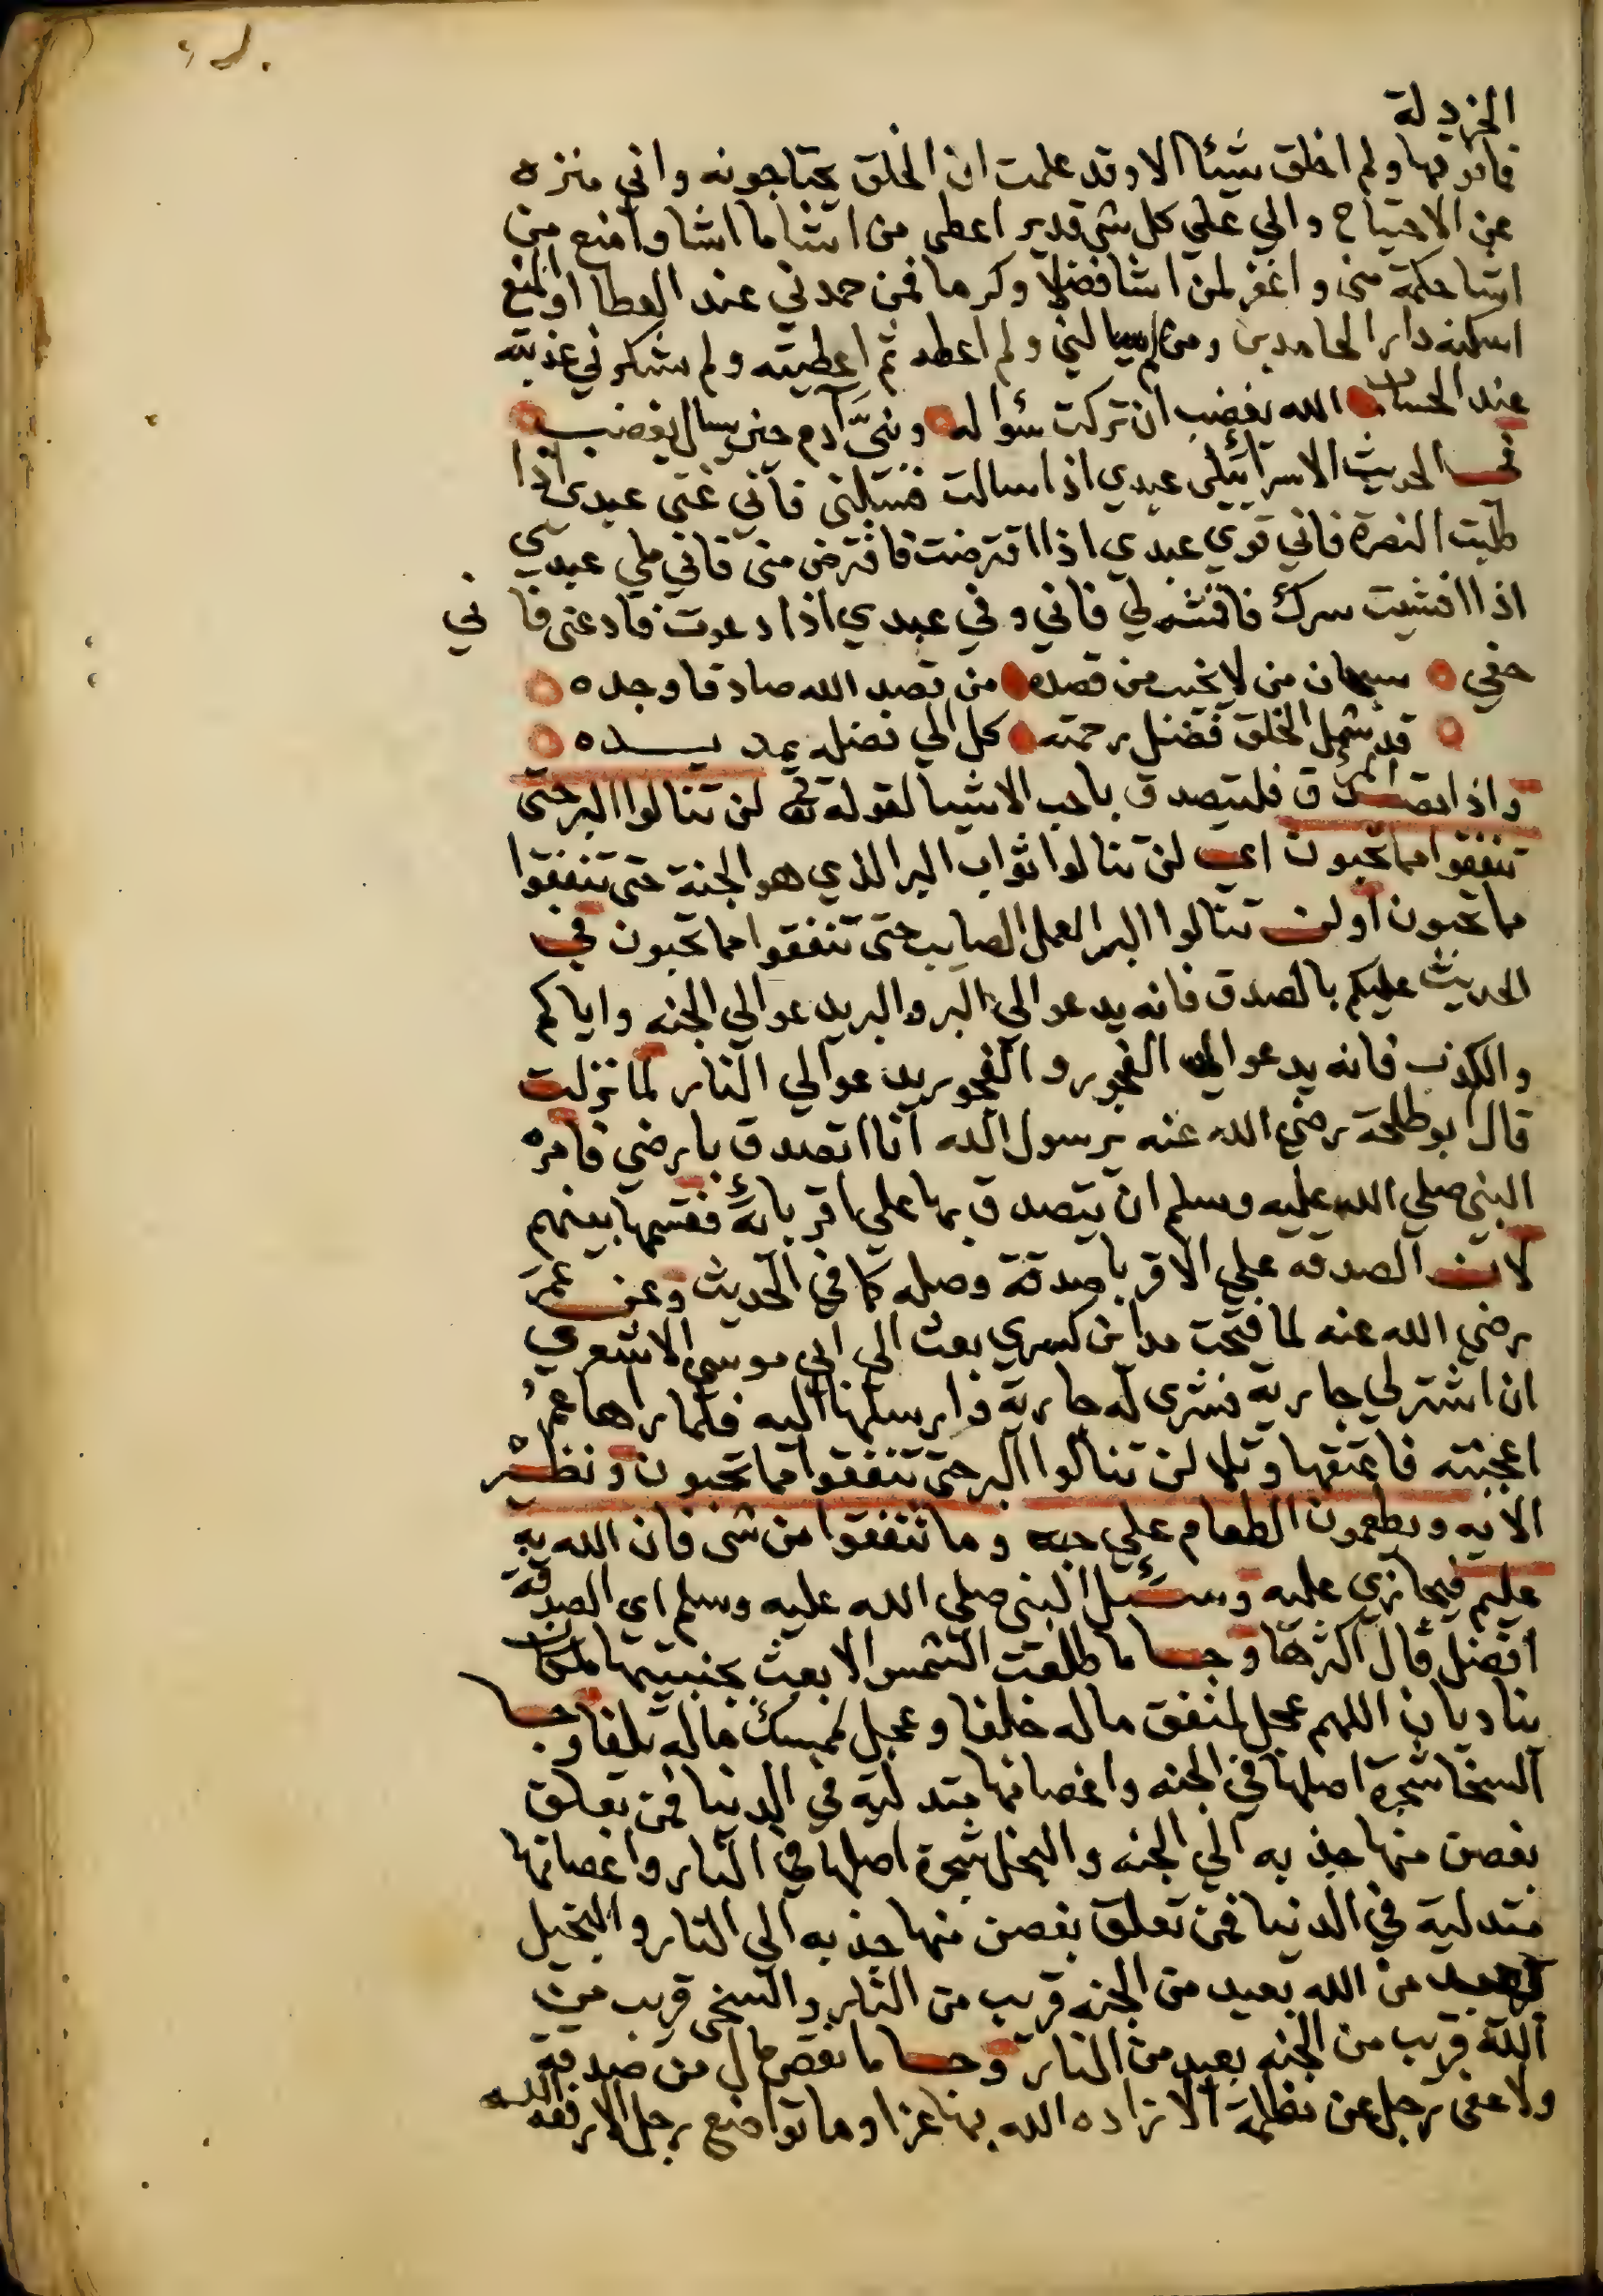 الخردلة
فما فوقها ولم اخلق شيئا الا وقد علمت ان الخلق يحتاجونه واني منزه
عن الاحتياج والي علي كل شي قدير اعطي من اشا ما اشا وامنع من
اشا حكمة مني واغفر لمن اشا فضلا وكرما فمن حمدني عند العطا او المنع
اسكنه دار الحامدين ومن لم يسالني ولم اعطه ثم اعطيته ولم يشكرني عذبته
عند الحساب الله يغضب ان تركت سؤاله وبنيّ آدم حين يسال يغضب
في الحديث الاسرائيلي عبدي اذا سالت فسئلني فاني غني عبدي اذا
طلبت النصرة فاني قوي عبدي اذا اقترضت فاقترض مني فاني ملي عبدي
اذا افشيت سرك فافشه لي فاني وفي عبدي اذا دعوت فادعني فا ني
حفي سبحان من لا يخيب من قصده من قصد الله صادقا وجده
قد شمل الخلق فضل رحمته كل الي فضله يمد يده
واذا تصدق المرؤ فليتصدق باحب الاشيا لقوله تعالى لن تنالوا البر حتى
تنفقوا مما تحبون اي لن تنالوا ثواب البر الذي هو الجنة حتى تنفقوا
مما تحبون او لن تنالوا البر العمل الصايب حتى تنفقوا مما تحبون في
الحديث عليكم بالصدق فانه يدعوا الي البر والبر يدعوا الي الجنه واياكم
والكذب فانه يدعوا الي الفجور والفجور يدعوا الي النار لما نزلت
قال ابو طلحة رضي الله عنه يرسول الله انا اتصدق بارضي فامره
النبي صلي الله عليه وسلم ان يتصدق بها علي اقربائه فقسمها بينهم
لان الصدقه علي الاقربا صدقة وصله كما في الحديث وعن عمر
رضي الله عنه لما فتحت مداين كسري بعث الي ابي موسي الاشعري
ان اشتر لي جارية فشرى له جارية وارسلها اليه فلما راها عمر
اعجبته فاعتقها وتلا لن تنالوا البر حتى تنفقوا مما تحبون ونظير
الايه ويطعمون الطعام علي حبه وما تنفقوا من شي فان الله به
عليم فيجازي عليه وسئل النبي صلي الله عليه وسلم اي الصدقة
افضل قال اكثرها وجا ما طلعت الشمس الا بعث بجنبتيها ملكان
يناديان اللهم عجل لمنفق ماله خلفا وعجل لممسك ماله تلفا وجا
السخا شجرة اصلها في الجنه واغصانها متدلية في الدنيا فمن تعلق
بغصن منها جذبه الي الجنه والبخل شجرة اصلها في النار واغصانها
متدلية في الدنيا فمن تعلق بغصن منها جذبه الي النار والبخيل
بعيد من الله بعيد من الجنه قريب من النار والسخي قريب من
الله قريب من الجنه بعيد من النار وجا ما نقص مال من صدقة
ولا عفى رجل عن مظلمة الا زاده الله بها عزا وما تواضع رجل الا رفعه الله